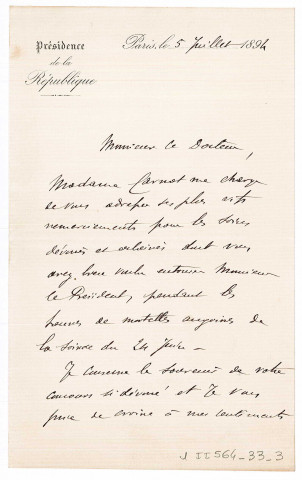 Présidence
de la
République
Paris, le 5 Juillet 1894
Monsieur le Docteur,
Madame Carnot me charge
de vous adresser ses plus vifs
remerciements pour les soins
dévoués et éclairés dont vous
avez bien voulu entourer Monsieur
le Président, pendant les
heures de mortelles angoisses de
la soirée du 24 Juin –
Je conserve le souvenir de votre
concours si dévoué et Je vous
prie de croire à mes sentiments
J II 564_33_3